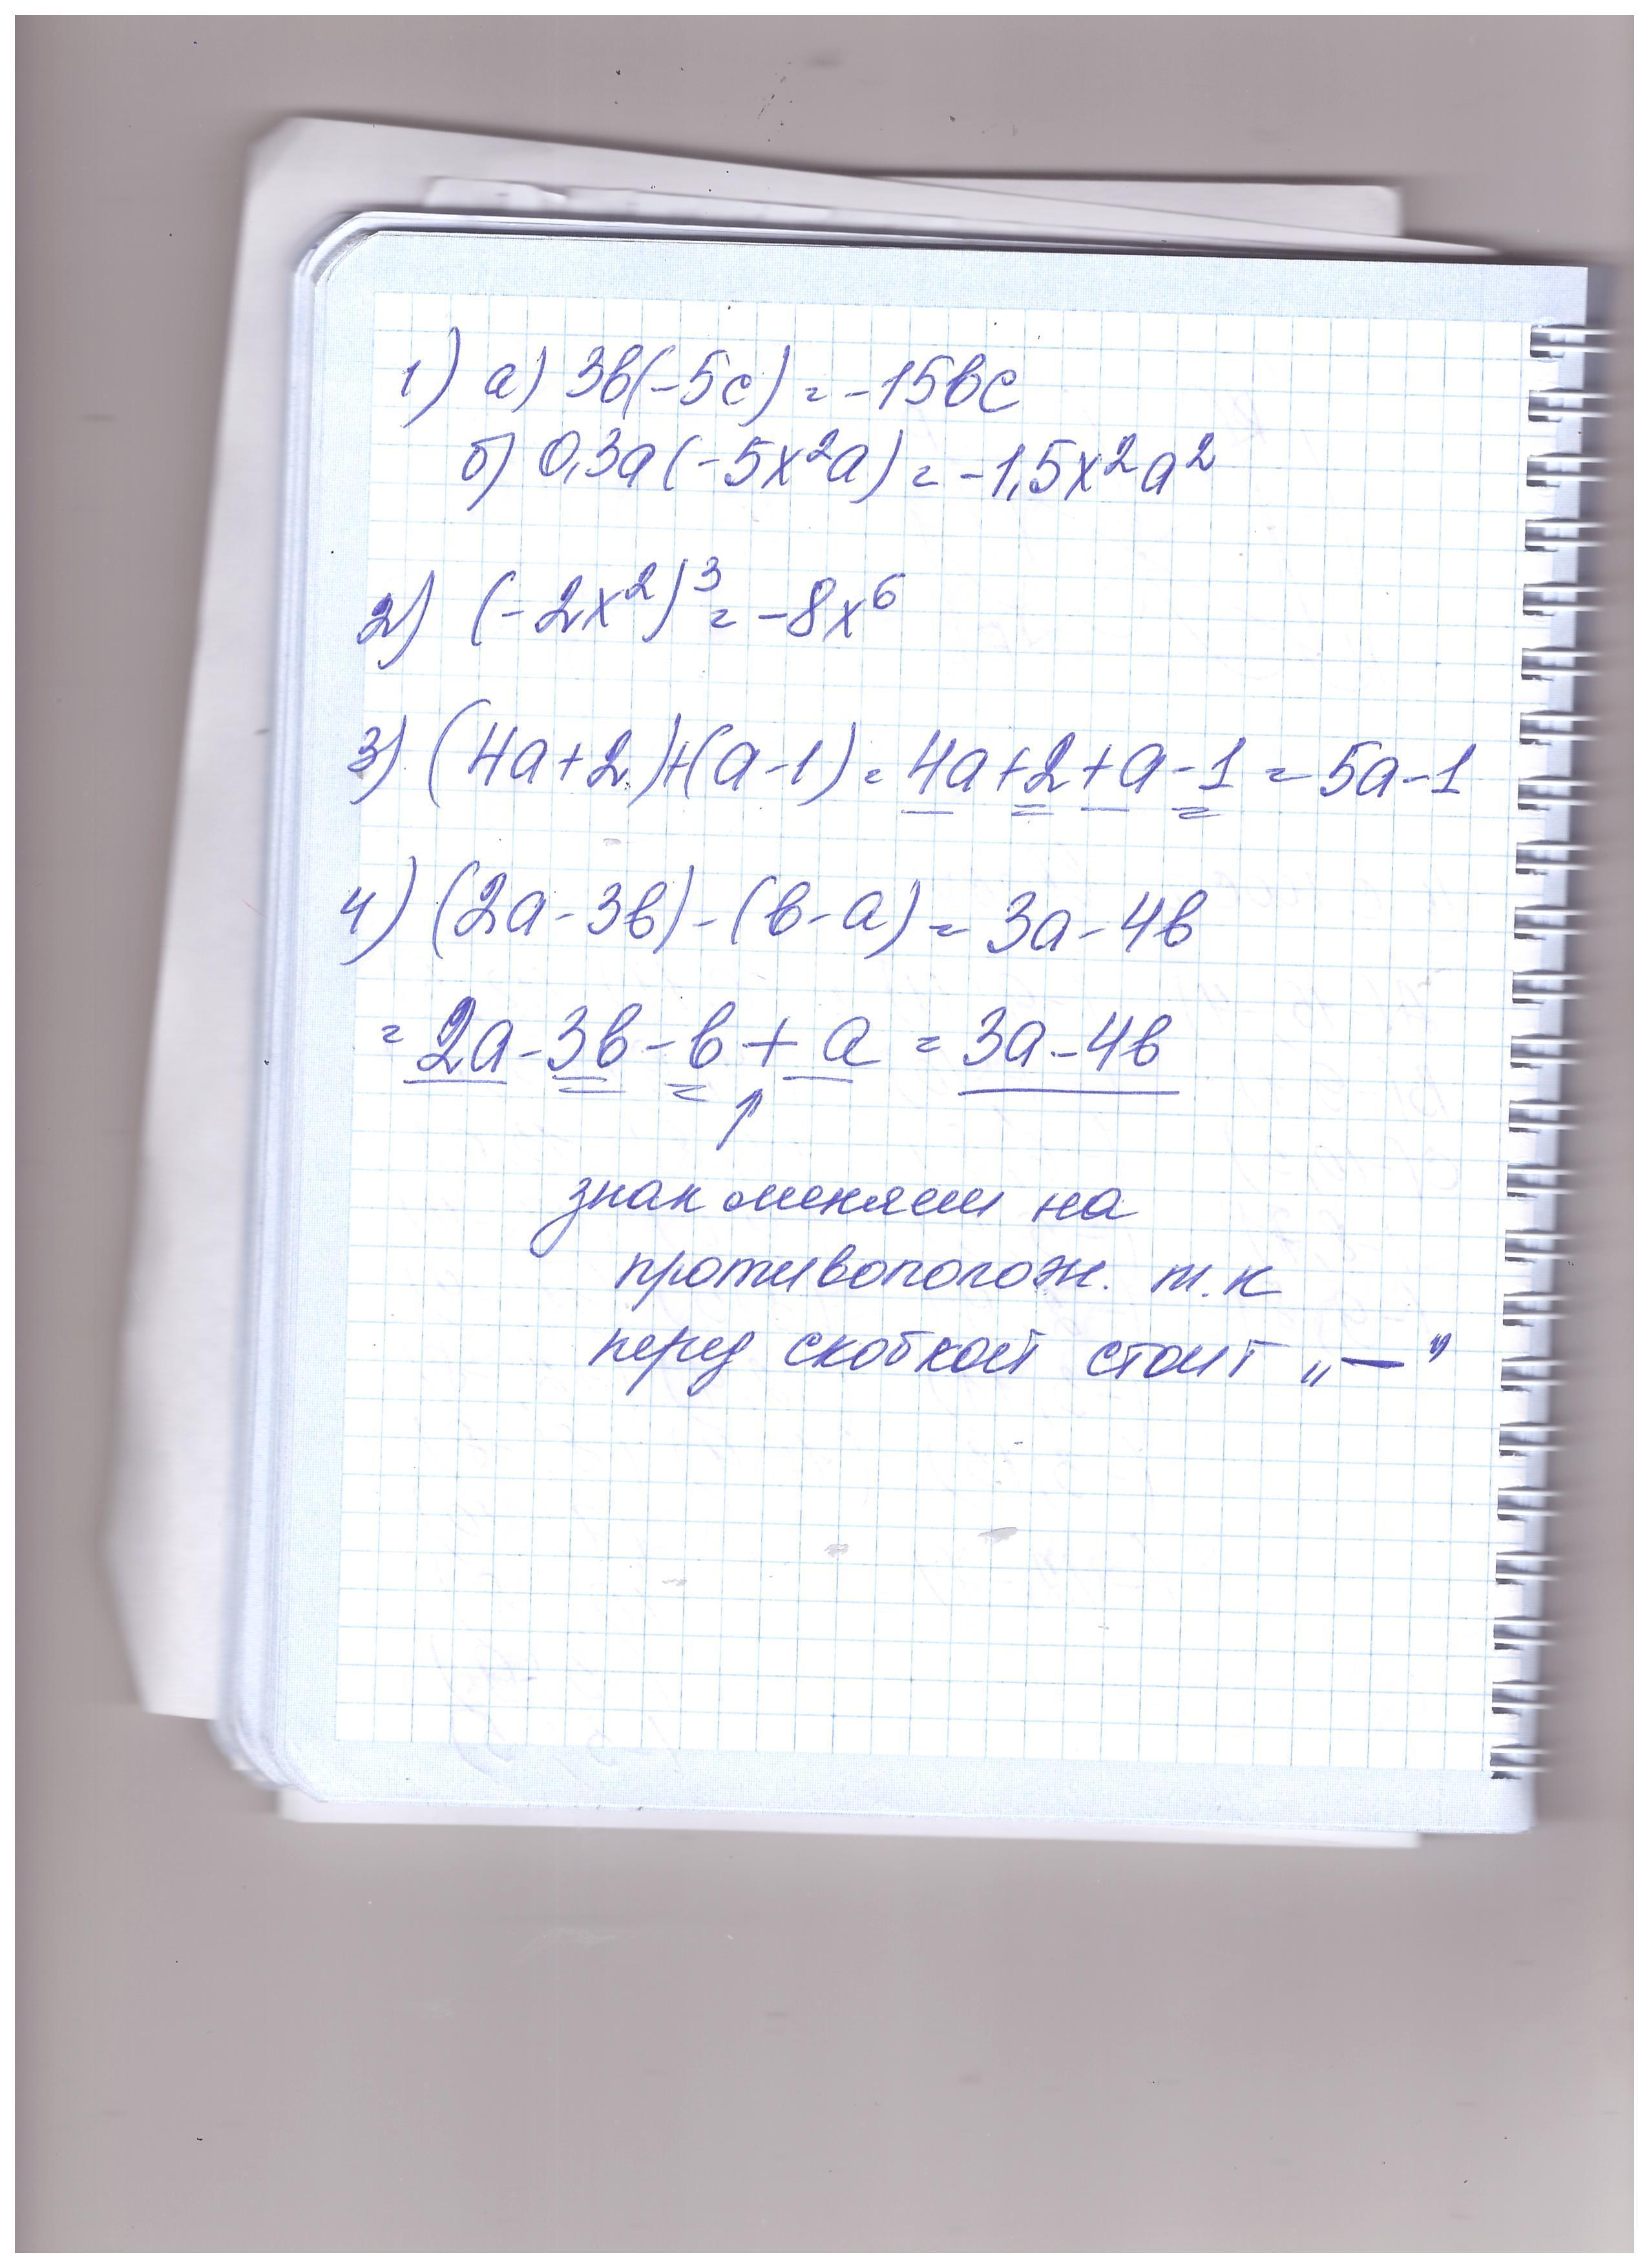 1) а) 3в(-5с) = -15вс
б) 0,3а(-5х²а) = -1,5х²а²
2) (-2х²)³ = -8х⁶
3) (4а+2)+(а-1) = 4а+2+а-1 = 5а-1
4) (2а-3в)-(в-а) = 3а-4в
= 2а-3в-в+а = 3а-4в
знак меняем на
противополож. т.к
перед скобкой стоит „—”